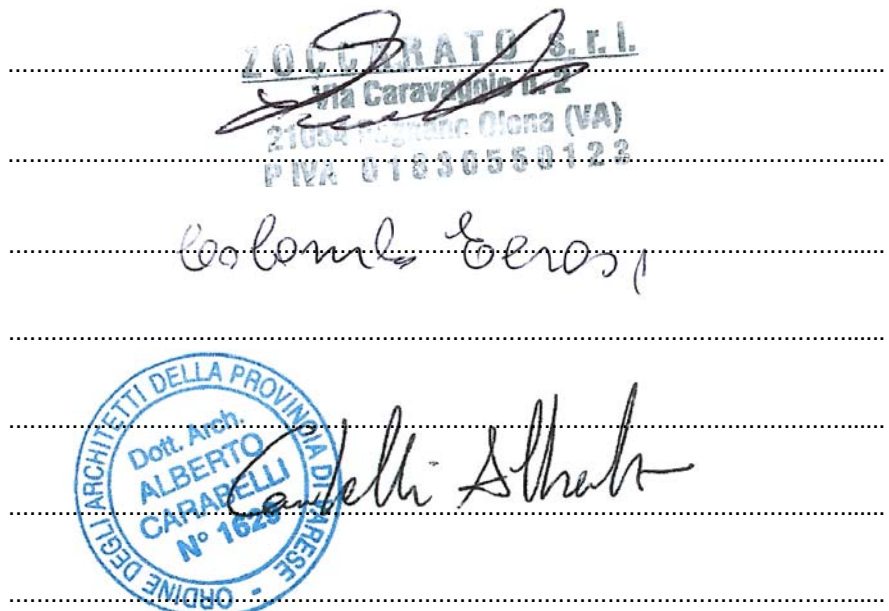 ZOCCARATO s.r.l.
Via Caravaggio n. 2
21054 Olona (VA)
P IVA 01890550123
Colombo
ORDINE DEGLI ARCHITETTI DELLA PROVINCIA DI VARESE -
Dott. Arch.
ALBERTO
CARABELLI
N° 1625
Carabelli Alberto